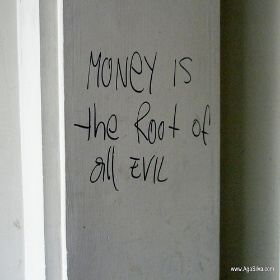 MONEY IS
the Root of
all EVIL
www.AgoSilva.com